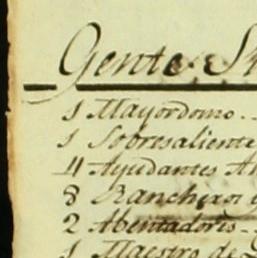 Gente
1 Mayordomo..
1 Sobresaliente
4 Ayudantes
8
2 Abentadores..
1 Maestro de